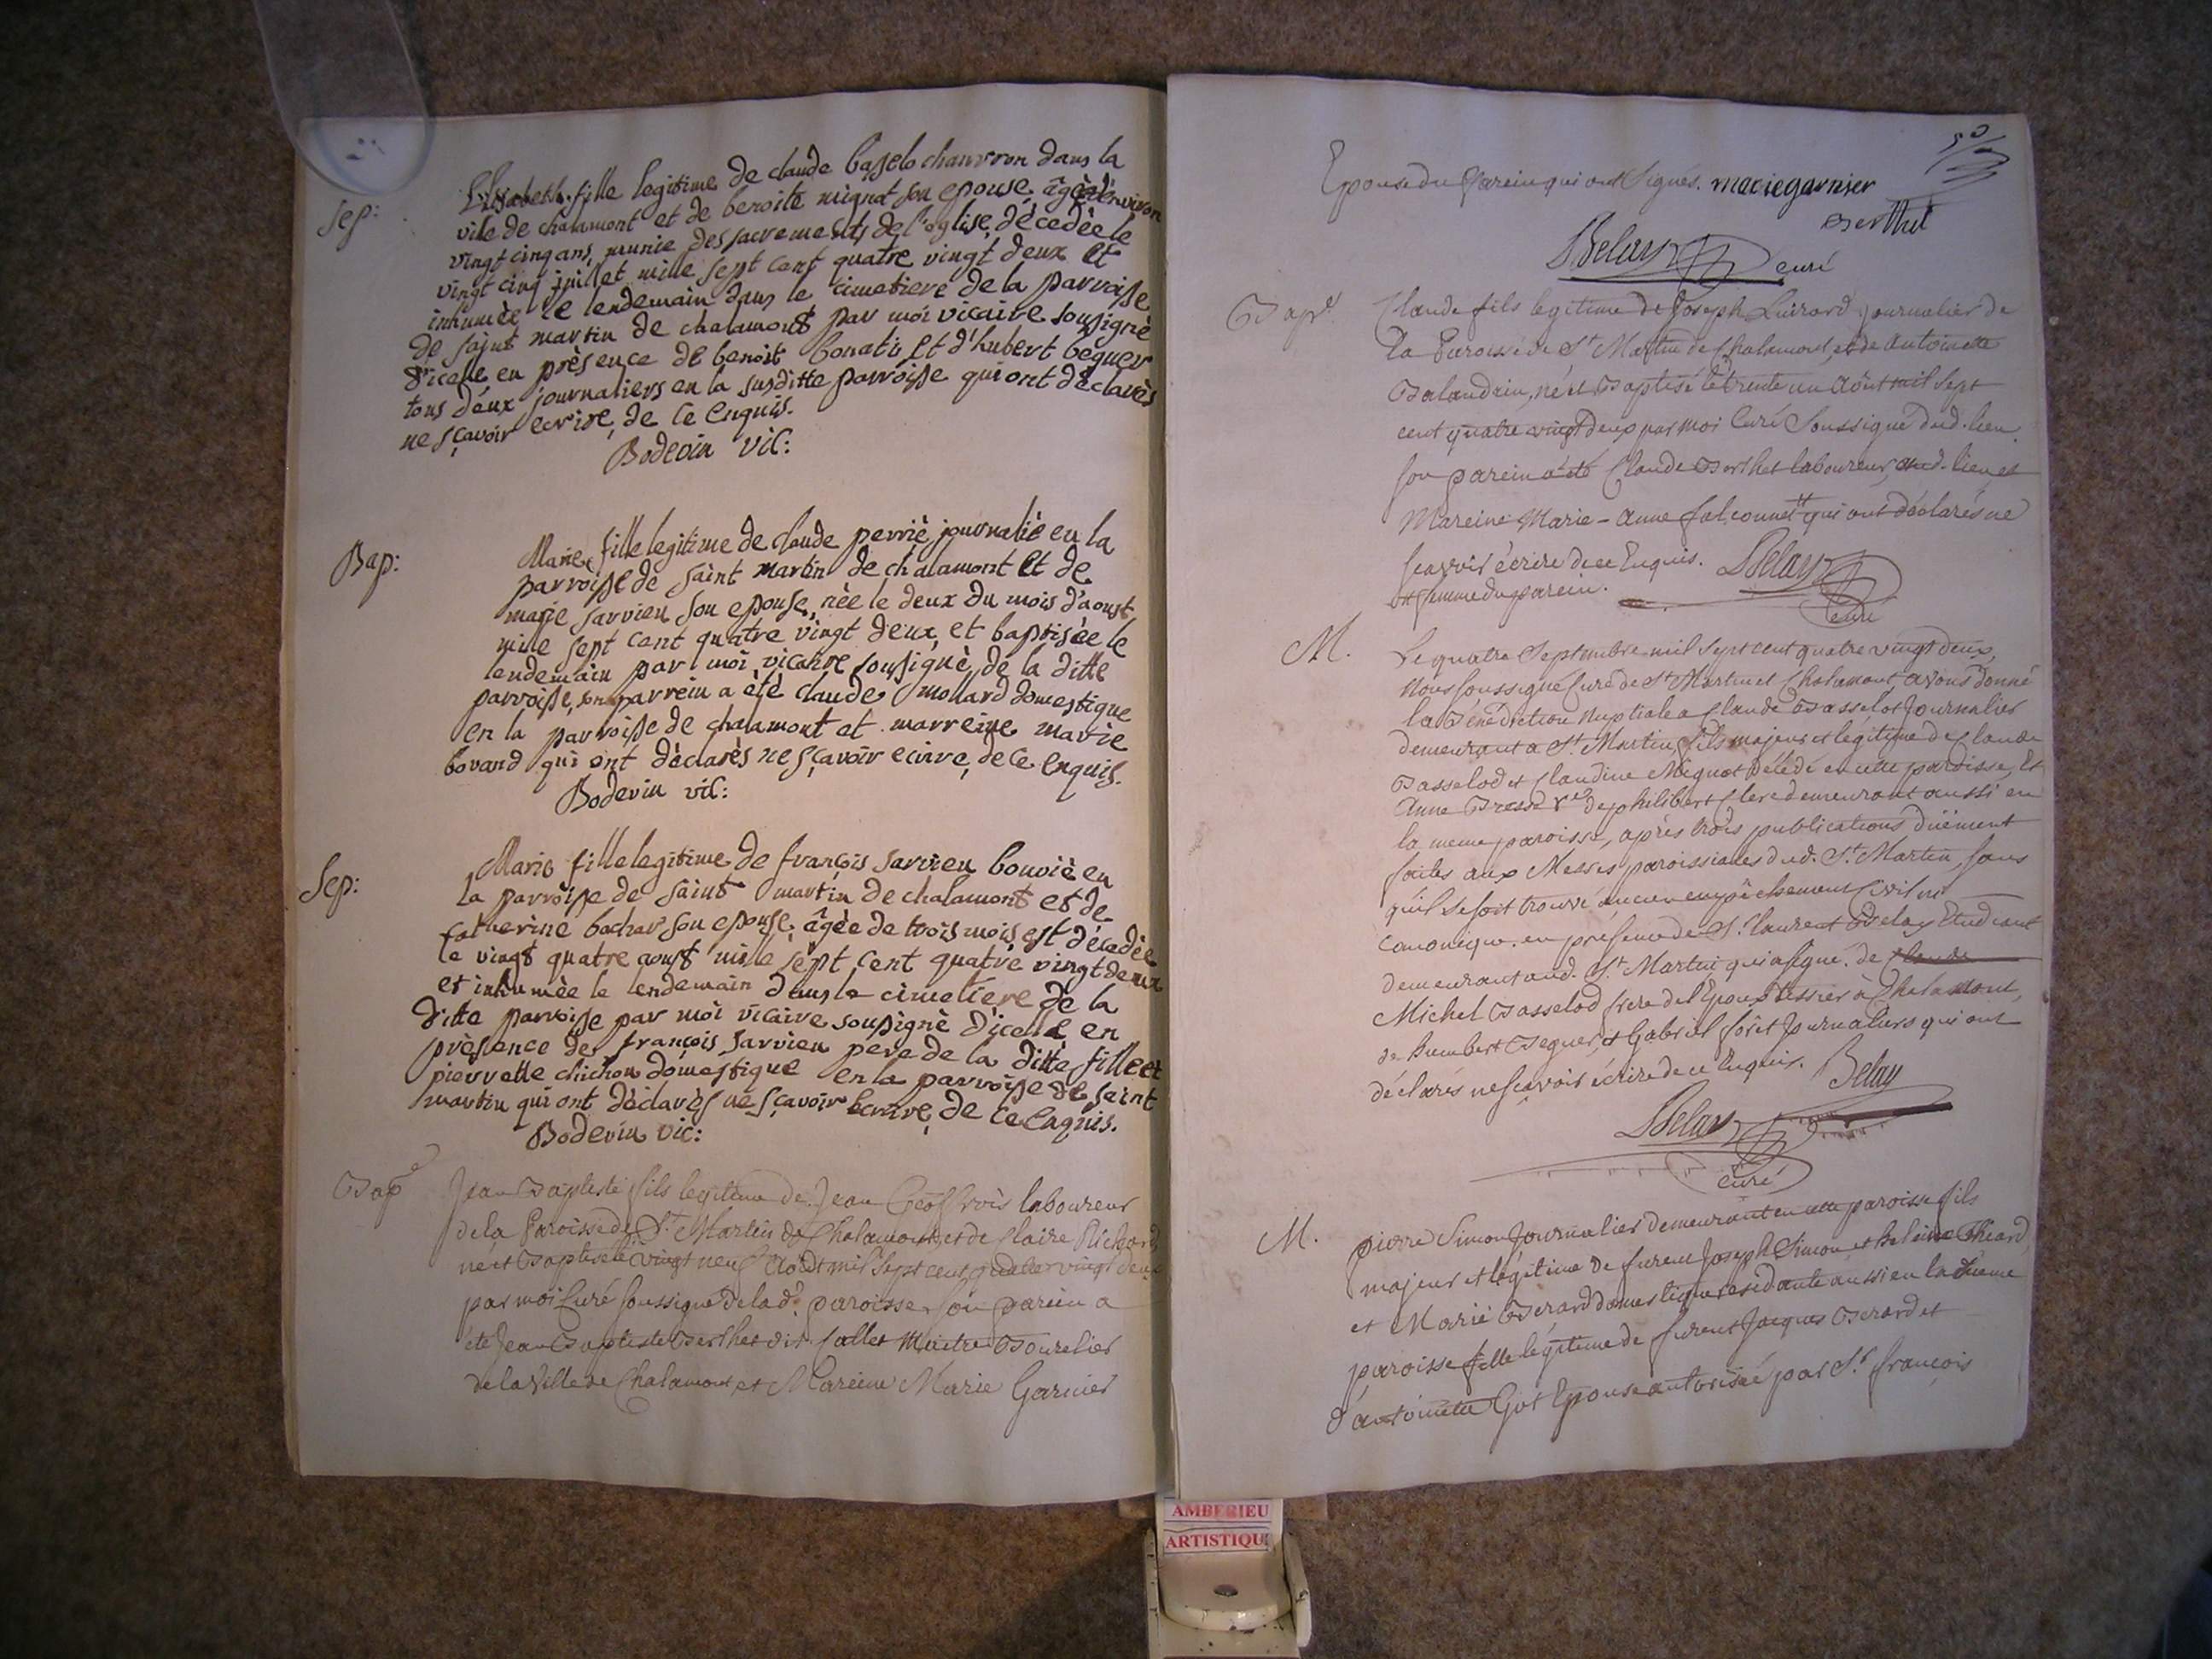 Sep:
Elisabeth fille legitime de claude baselo chanvron dans la
vile de chalamont et de benoite mignot son epouse, âgée d'environ
vingt cinq ans, munie des sacrements de l'église, décedèe le
vingt cinq juillet mille sept cent quatre vingt deux et
inhumèe le lendemain dans le cimetiere de la parroisse
de saint martin de chalamont par moi vicaire sousignè
d'icelle en prèsence de benoit bonatir et d'hubert beguer
tous deux journaliers en la susditte parroisse qui ont dèclarès
ne sçavoir ecrire, de ce enquis.
Bodevin vic:
Bap:
Marie, fille legitime de claude perriè journaliè en la
parroisse de saint martin de chalamont et de
marie sarvieu son epouse, nèe le deux du mois d'aoust
mille sept cent quatre vingt deux, et baptisèe le
lendemain par moi vicaire sousignè, de la ditte
parroisse, son parrein a ètè claude mollard domestique
en la parroisse de chalamont et marreine marie
bovard qui ont dèclarès ne sçavoir ecrire, de ce enquis.
Bodevin vic:
Sep:
Marie fille legitime de françois sarvieu bouviè en
la parroisse de saint martin de chalamont et de
catherine bochar son epouse, âgèe de trois mois, est dècedèe
le vingt quatre aoust mille sept cent quatre vingt deux
et inhumèe le lendemain dans le cimetiere de la
ditte parroisse par moi vicaire sousignè d'icelle en
prèsence de françois sarvieu pere de la ditte fille et
pierrette chichon domestique en la parroisse de saint
martin qui ont dèclarès ne sçavoir ecrire, de ce enquis.
Bodevin vic:
Bap^e
Jean Baptiste fils legitime de Jean Geoffrois laboureur
de la Paroisse de St Martin de Chalamont, et de Claire Richard
né et Baptisé le vingt neuf Août mil sept cent quatre vingt deux
par moi Curé soussigné de lad^e. paroisse, son parein a
été Jean Baptiste Berthet dit Collet Maitre Bourelier
de la Ville de Chalamont et Mareine Marie Garnier
50
Epouse du Parein qui ont Signés. marie garnier
Berthet
Belay curé
Bap^e
Claude fils legitime de Joseph Liérard journalier de
la Paroisse de St Martin de Chalamont, et de Antoinette
Balandrin, né et Baptisé le trente un Août mil sept
cent quatre vingt deux par moi Curé Soussigné dud. lieu
son parein a été Claude Berthet laboureur aud. lieu, et
Mareine Marie-Anne falconnet qui ont déclarés ne
scavoir écrire de ce Enquis. Belay
femme du parein.
curé
M.
Le quatre Septembre mil sept cent quatre vingt deux,
Nous soussigné Curé de St Martin et Chalamont, avons donné
la Bénédiction Nuptiale a Claude Basselot Journalier
demeurant a St Martin, fils majeur et légitime de Claude
Basselod et Claudine Mignot décédé en cette paroisse, Et
Anne Bresse V^e. de philibert Clere demeurant aussi en
la meme paroisse, après trois publications dûëment
faites aux Messes paroissiales dud. St Martin, sans
qu'il se soit trouvé aucun empêchement Civil ni
Canonique. en presence de Sr. laurent Belay Etudiant
demeurant aud. St Martin qui a signé. de Claude
Michel Basselod frere de l'Epoux tessier à Chalamont,
de humbert Beguer, et Gabriel forêt Journaliers qui ont
déclarés ne scavoir écrire de ce Enquis. Belay
Belay
curé
M.
pierre Simon Journalier demeurant en cette paroisse fils
majeur et légitime de furent Joseph Simon et heleine Thiard
et Marie Berard domestique residante aussi en la meme
paroisse fille légitime de furent Jacques Berard et
d'antoinette Got Epouse autorisée par Sr. françois
AMBERIEU
ARTISTIQU